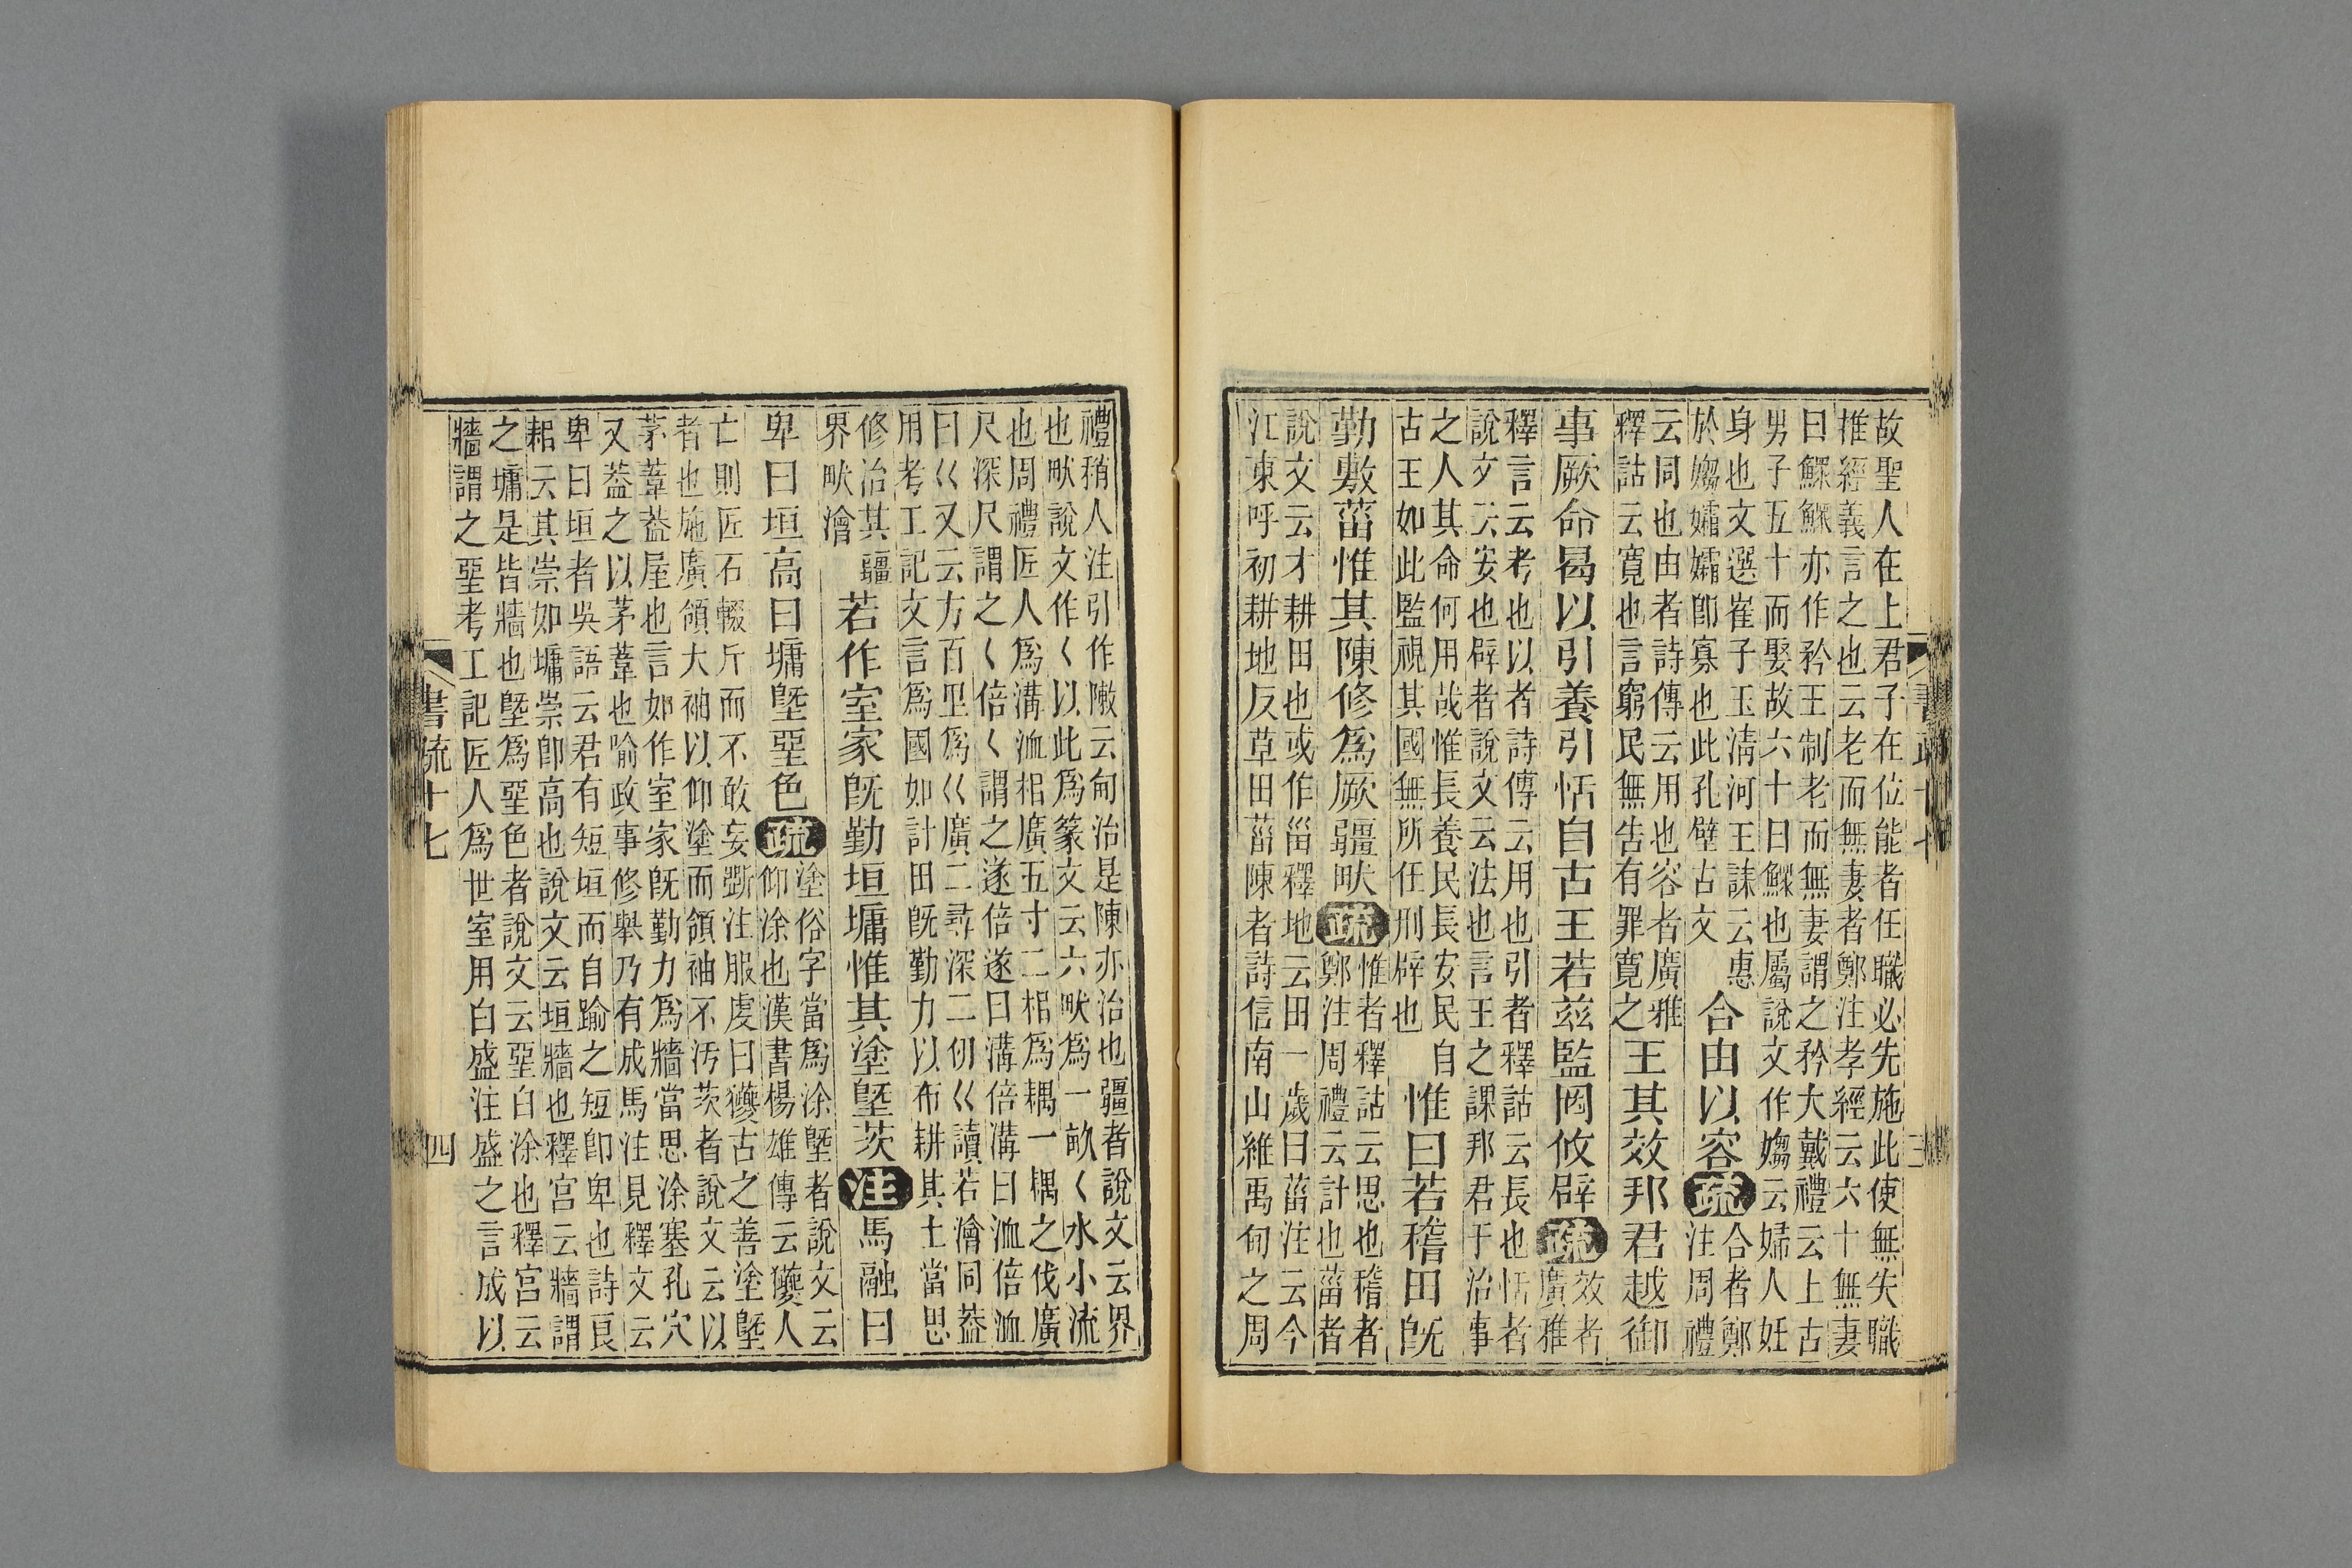 故聖人在上君子在位能者任職必先施此使無失職
推經義言之也云老而無妻者鄭注孝經云六十無妻
曰鰥鰥亦作矜王制老而無妻謂之矜大戴禮云上古
男子五十而娶故六十曰鰥也屬說文作媰云婦人妊
身也文選崔子玉清河王誄云惠
於媰孀孀卽寡也此孔壁古文
合由以容疏
合者鄭
注周禮
云同也由者詩傳云用也容者廣雅
釋詁云寬也言窮民無告有罪寬之
王其效邦君越御
事厥命曷以引養引恬自古王若茲監罔攸辟疏
效者
廣雅
釋言云考也以者詩傳云用也引者釋詁云長也恬者
說文云安也辟者說文云法也言王之課邦君于治事
之人其命何用哉惟長養民長安民自
古王如此監視其國無所任刑辟也
惟曰若稽田旣
勤敷菑惟其陳修爲厥疆畎疏
惟者釋詁云思也稽者
鄭注周禮云計也菑者
說文云才耕田也或作甾釋地云田一歲曰菑注云今
江東呼初耕地反草田菑陳者詩信南山維禹甸之周
書疏十七
三
禮稍人注引作敶云甸治是陳亦治也疆者說文云界
也畎說文作く以此爲篆文云六畎爲一畝く水小流
也周禮匠人爲溝洫梠廣五寸二梠爲耦一耦之伐廣
尺深尺謂之く倍く謂之遂倍遂曰溝倍溝曰洫倍洫
曰巜又云方百里爲巜廣二尋深二仞巜讀若澮同葢
用考工記文言爲國如計田旣勤力以布耕其土當思
修治其疆
界畎澮
若作室家旣勤垣墉惟其塗墍茨注馬融曰
卑曰垣高曰墉墍堊色疏
塗俗字當爲涂墍者說文云
仰涂也漢書楊雄傳云獿人
亡則匠石輟斤而不敢妄斲注服虔曰獿古之善塗墍
者也施廣領大袖以仰塗而領袖不汚茨者說文云以
茅葦葢屋也言如作室家旣勤力爲牆當思涂塞孔穴
又葢之以茅葦也喻政事修舉乃有成馬注見釋文云
卑曰垣者吳語云君有短垣而自踰之短卽卑也詩良
耜云其崇如墉崇卽高也說文云垣牆也釋宮云牆謂
之墉是皆牆也墍爲堊色者說文云堊白涂也釋宮云
牆謂之堊考工記匠人爲世室用白盛注盛之言成以
書疏十七
四